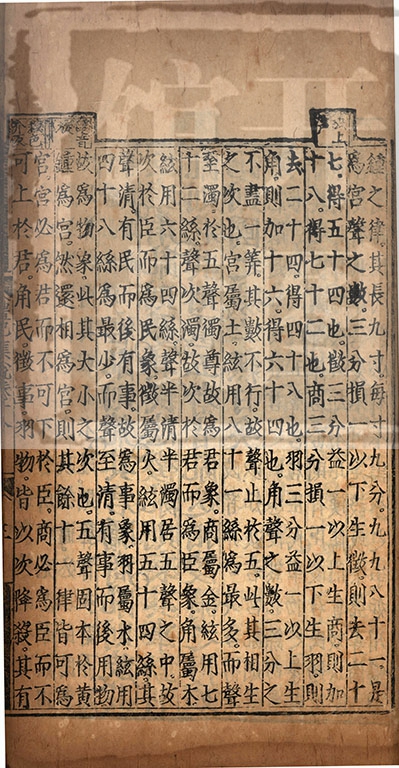 鐘之律。其長九寸。每寸九分。九九八十一。是
爲宮聲之數。三分損一以下生徵。則去二十
七。得五十四也。徵三分益一以上生商。則加
十八。得七十二也。商三分損一以下生羽。則
去二十四。得四十八也。羽三分益一以上生
角。則加十六。得六十四也。角聲之數。三分之
不盡一筭。其數不行。故聲止於五。此其相生
之次也。宮屬土。絃用八十一絲爲最多。而聲
至濁。於五聲獨尊。故爲君象。商屬金。絃用七
十二絲。聲次濁。故次於君而爲臣象。角屬木
絃用六十四絲。聲半清半濁。居五聲之中。故
次於臣而爲民象。徵屬火。絃用五十四絲。其
聲清。有民而後有事。故爲事象。羽屬水。絃用
四十八絲爲最少。而聲至清。有事而後用物
故爲物象。此其大小之次也。五聲固本於黃
鐘爲宮。然還相爲宮。則其餘十一律皆可爲
宮。宮必爲君而不可下於臣。商必爲臣而不
可上於君。角民。徵事。羽物。皆以次降殺。其有